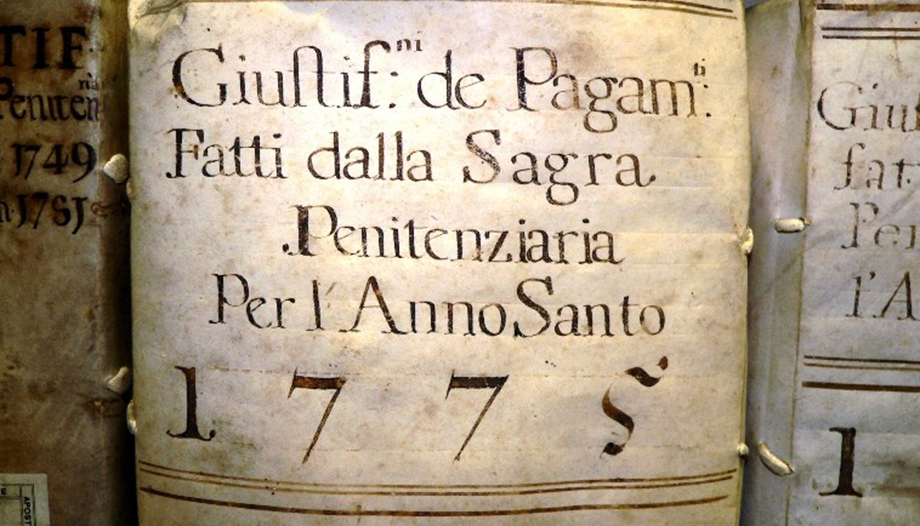 TIF
Peniten
1749
1751
Giustif:ni de Pagam:ti
Fatti dalla Sagra
Penitenziaria
Per l'Anno Santo
1775
Giu
fat
Pe
l'A
1
APOST